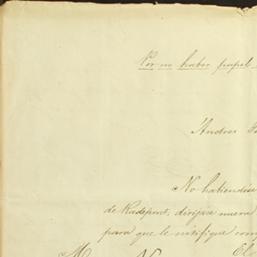 Por no haber papel
Andres
No habiendose
de Radepont, dirijase nueva
para que le notifique com